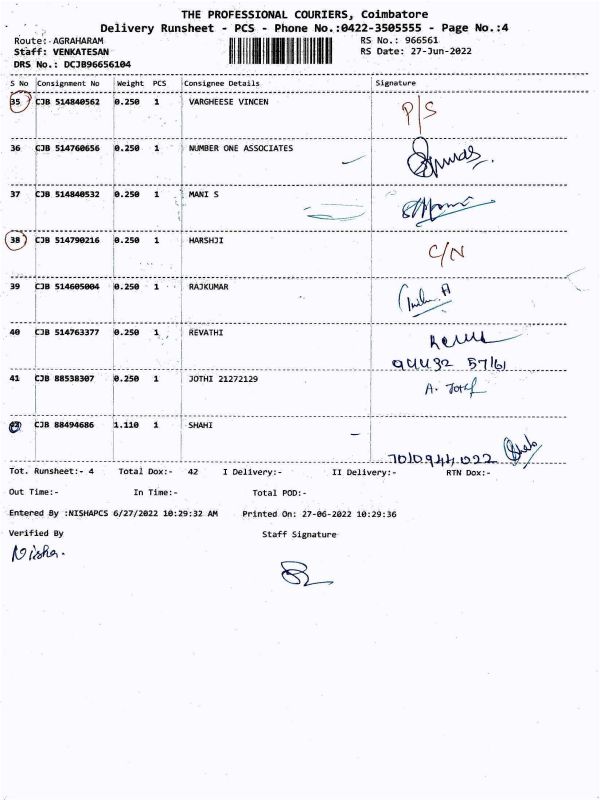 THE PROFESSIONAL COURIERS, Coimbatore
Delivery Runsheet - PCS - Phone No.:0422-3505555 - Page No.:4
Route:- AGRAHARAM RS No.: 966561
Staff: VENKATESAN RS Date: 27-Jun-2022
DRS No.: DCJB96656104
S No Consignment No Weight PCS Consignee Details Signature
35 CJB 514840562 0.250 1 VARGHEESE VINCEN P/S
36 CJB 514760656 0.250 1 NUMBER ONE ASSOCIATES
37 CJB 514840532 0.250 1 MANI S
38 CJB 514790216 0.250 1 HARSHJI C/N
39 CJB 514605004 0.250 1 RAJKUMAR
40 CJB 514763377 0.250 1 REVATHI
41 CJB 88538307 0.250 1 JOTHI 21272129 A. Jothi
42 CJB 88494686 1.110 1 SHAHI
Tot. Runsheet:- 4 Total Dox:- 42 I Delivery:- II Delivery:- RTN Dox:-
Out Time:- In Time:- Total POD:-
Entered By :NISHAPCS 6/27/2022 10:29:32 AM Printed On: 27-06-2022 10:29:36
Verified By Staff Signature
Nisha.